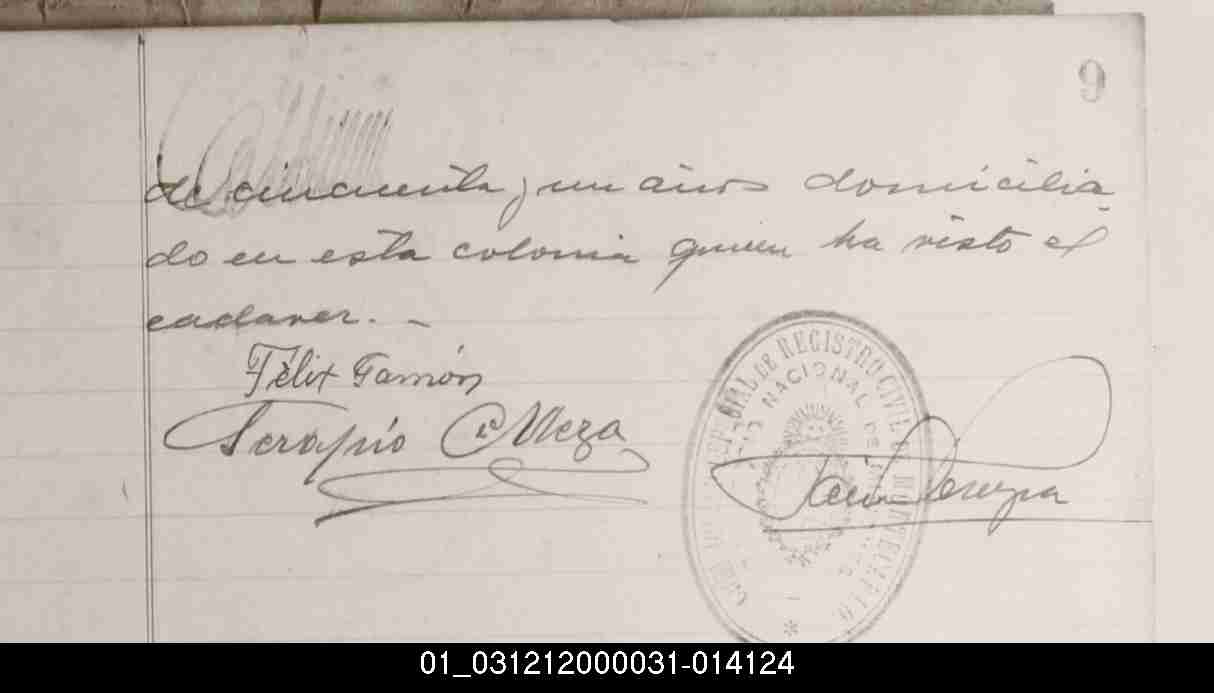 9
de cincuenta y un años domicilia-
do en esta colonia quien ha visto el
cadaver. –
Félix Famón
Serapio C. Meza
REGISTRO CIVIL
NACIONAL DE
01_031212000031-014124